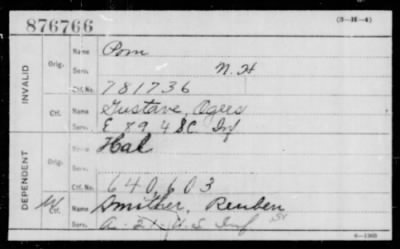 876766 (3-II-4)
INVALID
Orig. Name Pom
Serv. N.H
Ctf. No. 781736
Ctf. Name Gustave, Ogers
Serv. E 89 & 48C Inf
DEPENDENT
Orig. Name Hal
Serv.
Ctf. No. 640,603
Ctf. Name Smither, Reuben
Serv. A- U.S Inf
6-1960